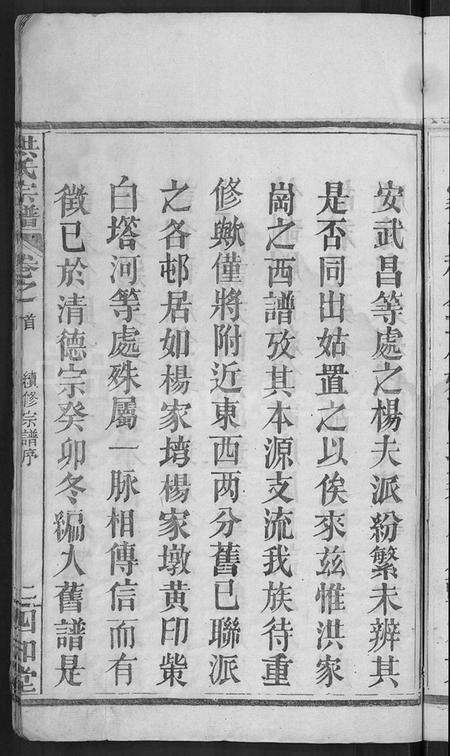 安武昌等處之楊夫派紛繁未辨其
是否同出姑置之以俟來玆惟洪家
崗之西譜攷其本源支流我族待重
修歟僅將附近東西两分舊已聯派
之各邨居如楊家塆楊家墩黄印
白塔河等處殊屬一脈相傳信而有
徵已於清德宗癸卯冬編人舊譜是
洪氏宗譜 卷之首 續修宗譜序 二 四知堂